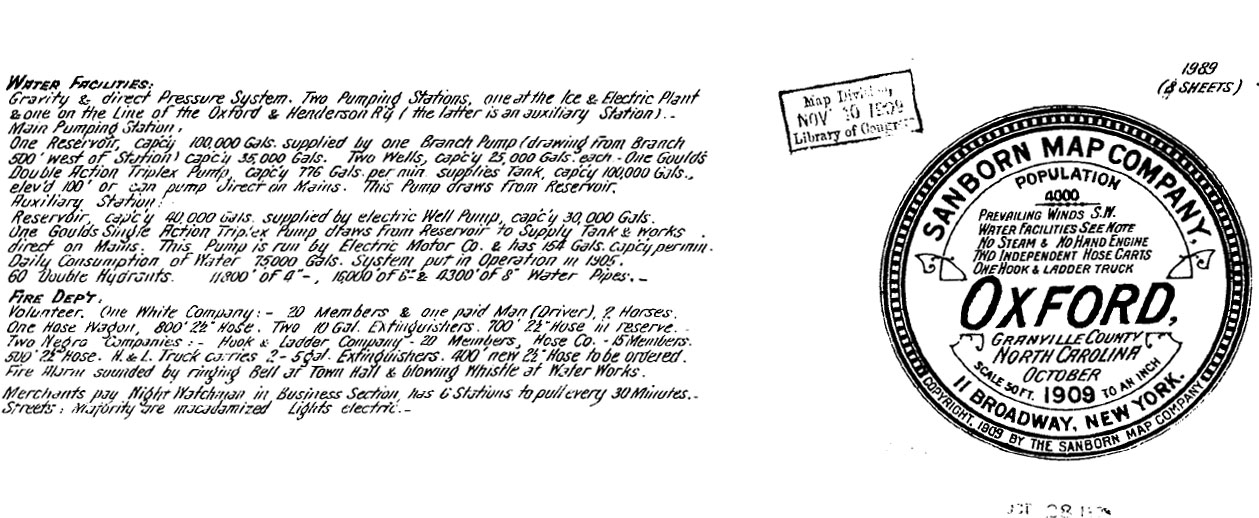 WATER FACILITIES:
Gravity & direct Pressure System. Two Pumping Stations, one at the Ice & Electric Plant
& one on the Line of the Oxford & Henderson R'y (the latter is an auxiliary Station).-
Main Pumping Station:
One Reservoir, capc'y 100,000 Gals. supplied by one Branch Pump (drawing from Branch
500' west of Station) capc'y 35,000 Gals. Two Wells, capc'y 25,000 Gals. each - One Gould's
Double Action Triplex Pump, capc'y 776 Gals. per min. supplies Tank, capc'y 100,000 Gals.,
elev'd 100' or can pump direct on Mains. This Pump draws from Reservoir.
Auxiliary Station:
Reservoir, capc'y 40,000 Gals. supplied by electric Well Pump, capc'y 30,000 Gals.
One Goulds Single Action Triplex Pump draws from Reservoir to Supply Tank & works
direct on Mains. This Pump is run by Electric Motor Co. & has 154 Gals. capc'y per min.
Daily Consumption of Water 75000 Gals. System put in Operation in 1905.
60 Double Hydrants. 11800' of 4"-, 16000' of 6" & 4300' of 8" Water Pipes.-
FIRE DEP'T:
Volunteer. One White Company:- 20 Members & one paid Man (Driver), 2 Horses.
One Hose Wagon, 800' 2½" Hose. Two 10 Gal. Extinguishers. 700' 2½" Hose in reserve.-
Two Negro Companies:- Hook & Ladder Company - 20 Members, Hose Co. - 15 Members.
500' 2½" Hose. H. & L. Truck carries 2-5 gal. Extinguishers. 400' new 2½" Hose to be ordered.
Fire Alarm sounded by ringing Bell at Town Hall & blowing Whistle at Water Works.
Merchants pay Night Watchman in Business Section, has 6 Stations to pull every 30 Minutes.-
Streets: Majority are macadamized Lights electric.-
Map Division
NOV 10 1909
Library of Congress
1989
(8 SHEETS)
SANBORN MAP COMPANY,
POPULATION
4000
PREVAILING WINDS S.W.
WATER FACILITIES SEE NOTE
NO STEAM & NO HAND ENGINE
TWO INDEPENDENT HOSE CARTS
ONE HOOK & LADDER TRUCK
OXFORD,
GRANVILLE COUNTY
NORTH CAROLINA
OCTOBER
SCALE 50 FT. 1909 TO AN INCH
11 BROADWAY, NEW YORK.
COPYRIGHT, 1909 BY THE SANBORN MAP COMPANY
28